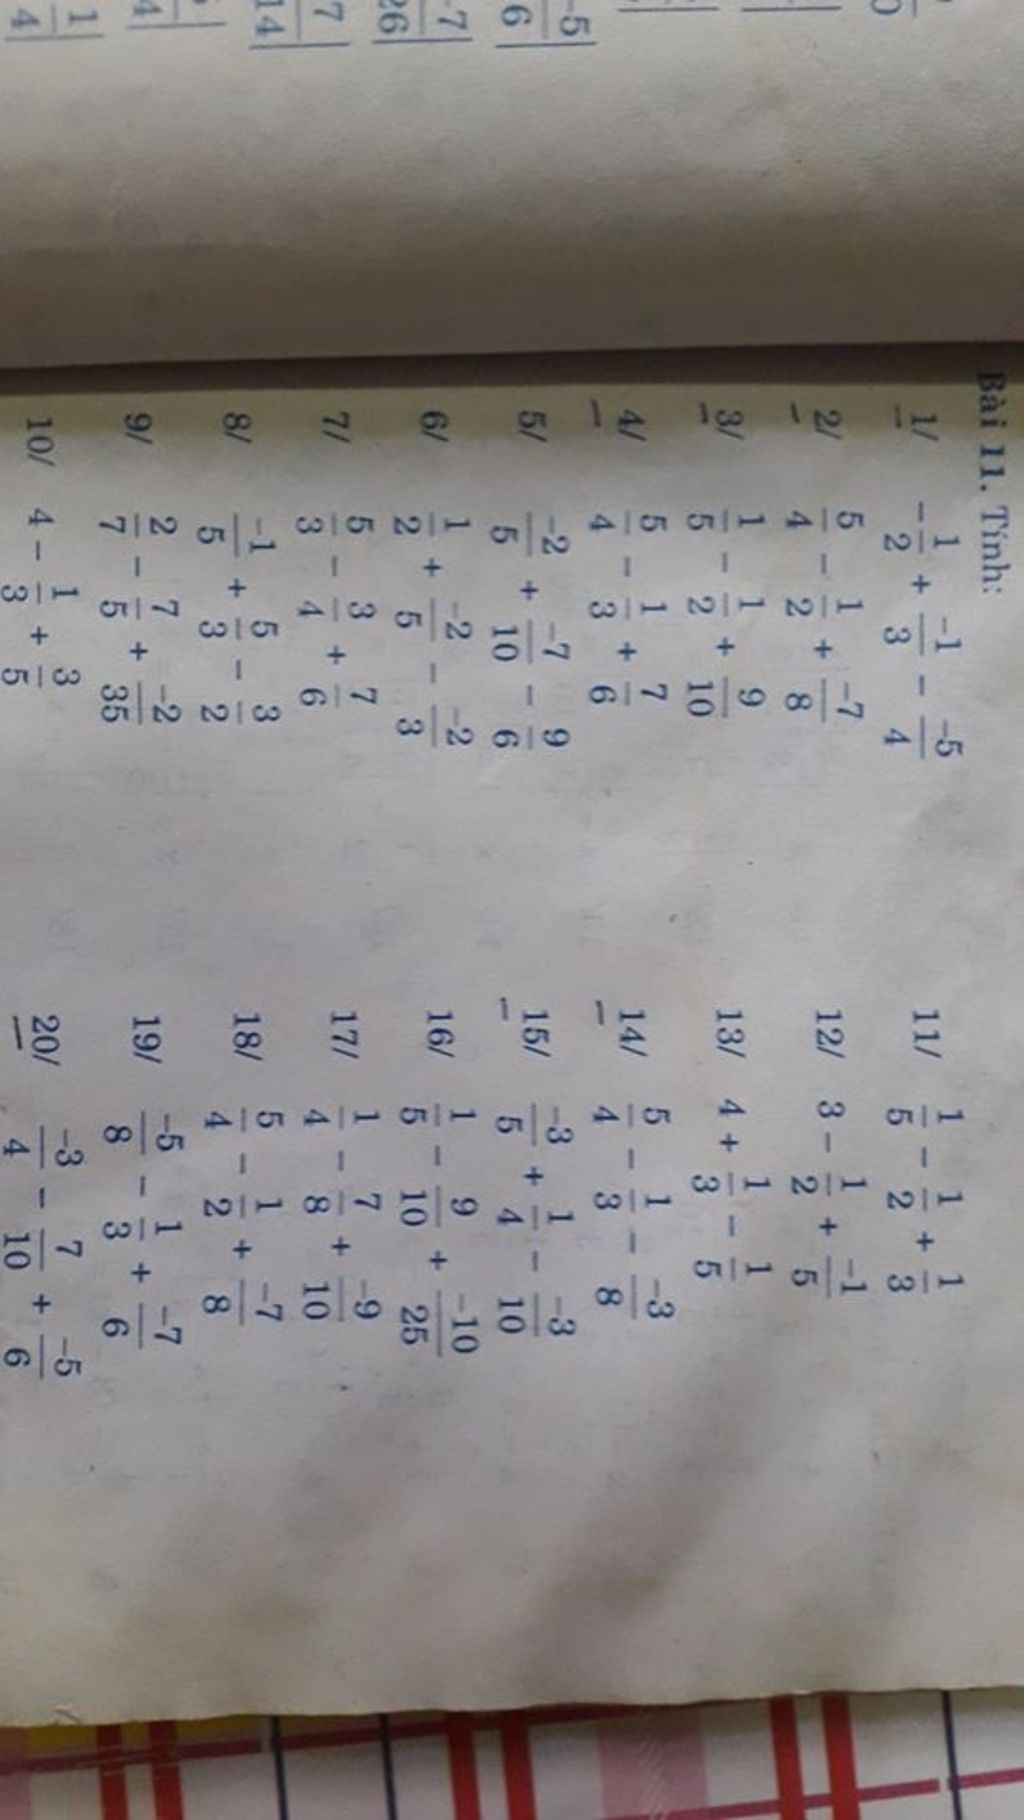 Bài 11. Tính:
1/ -1/2 + -1/3 - -5/4
2/ 5/4 - 1/2 + -7/8
3/ 1/5 - 1/2 + 9/10
4/ 5/4 - 1/3 + 7/6
5/ -2/5 + -7/10 - 9/6
6/ 1/2 + -2/5 - -2/3
7/ 5/3 - 3/4 + 7/6
8/ -1/5 + 5/3 - 3/2
9/ 2/7 - 7/5 + -2/35
10/ 4 - 1/3 + 3/5
11/ 1/5 - 1/2 + 1/3
12/ 3 - 1/2 + -1/5
13/ 4 + 1/3 - 1/5
14/ 5/4 - 1/3 - -3/8
15/ -3/5 + 1/4 - -3/10
16/ 1/5 - 9/10 + -10/25
17/ 1/4 - 7/8 + -9/10
18/ 5/4 - 1/2 + -7/8
19/ -5/8 - 1/3 + -7/6
20/ -3/4 - 7/10 + -5/6